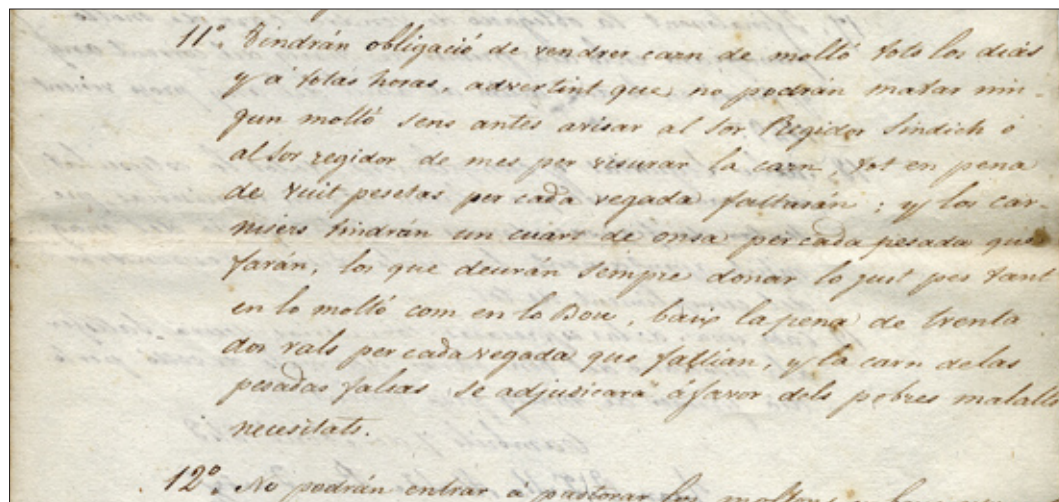 11º. Tindrán obligació de vendrer carn de moltó tots los dias
y á totas horas, advertint que no podrán matar nin-
gun moltó sens antes avisar al Sor Regidor Sindich o
al Sor regidor de mes per visurar la carn, tot en pena
de vuit pesetas per cada vegada faltarán; y los car-
nisers tindrán un cuart de onsa per cada pesada que
farán, los que deurán sempre donar lo just pes tant
en lo moltó com en lo Bou, baix la pena de trenta
dos rals per cada vegada que fallian, y la carn de las
pesadas falsas se adjudicara á favor dels pobres malalts
necesitats.
12º. No podrán entrar a pasturar los moltons